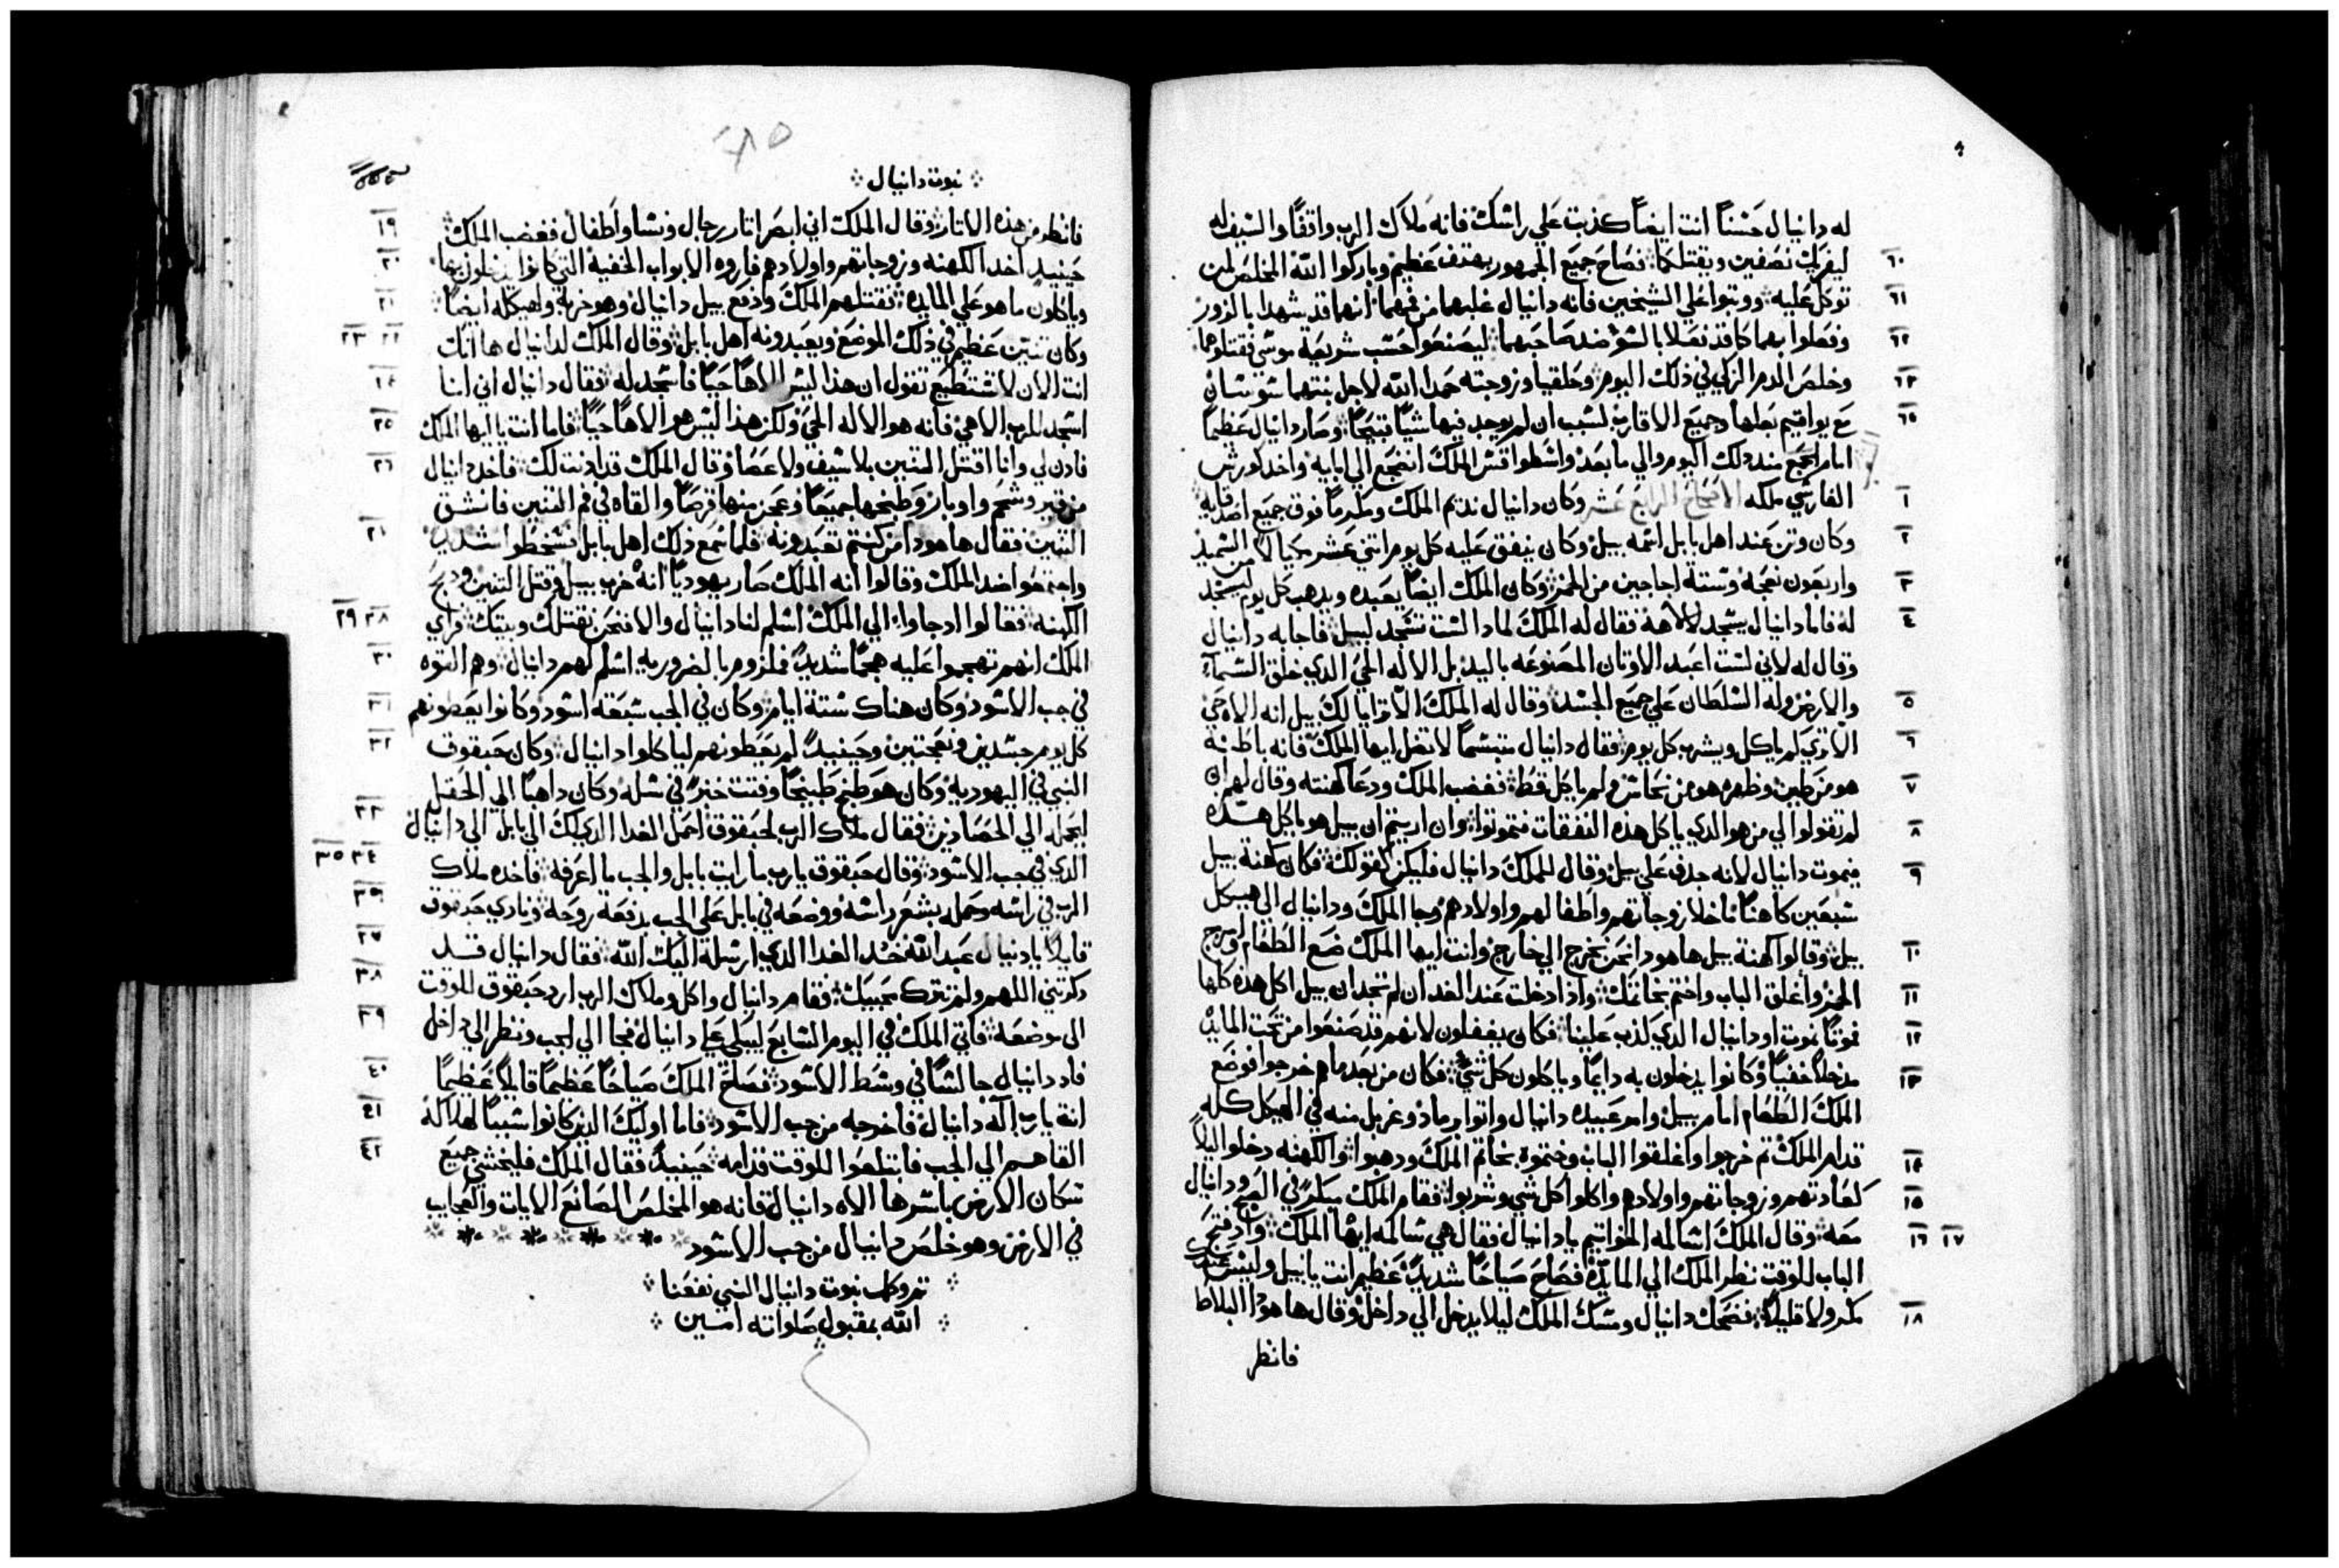 له دانيال حسناً انت ايضاً كذبت علي راسك فانه ملاك الرب واقفاً والسيف له
٦٠ ليفريك نصفين ويقتلكما فصاح جميع الجمهور بهتف عظيم وباركوا الله المخلص لمن
٦١ توكل عليه ووتبوا علي الشيخين فانه دانيال غلبهما من فمهما انهما قد شهدا بالزور
٦٢ وفعلوا بهما كما قد فعلا بالسؤ ضد صاحبهما ليصنعوا حسب شريعة موسي فقتلوهما
٦٣ وخلص الدم الزكي في ذلك اليوم وحلقيا وزوجته حمدا الله لاجل بنتهما سوسان
٦٥ مع يواقيم بعلها وجميع الاقارب لسبب ان لم يوجد فيها شياً قبيحاً وصار دانيال عظيماً
امام الجمع منذ دلك اليوم والي ما بعد واسطواقس الملك انضجع الي ابايه واخد كورش
١ الفارسي ملكه الاصحاح الرابع عشر وكان دانيال نديم الملك ومكرماً فوق جميع اصدقايه
٢ وكان وتن عند اهل بابل اسمه بيل وكان ينفق عليه كل يوم اتني عشر مكيالا من السميد
٣ واربعون نعجه وستة اجاجين من الخمر وكان الملك ايضاً يعبده ويدهب كل يوم ليسجد
٤ له فاما دانيال يسجد لالاهه فقال له الملك لمادا لست تسجد لبيل فاجابه دانيال
وقال له لاني لست اعبد الاوتان المصنوعه باليد بل الاله الحي الدي خلق السماء
٥ والارض وله السلطان علي جميع الجسد وقال له الملك الا ترايا لك بيل انه الاه حي
٦ الا تري كم ياكل ويشرب كل يوم فقال دانيال متبسماً لا تضل ايها الملك فانه باطنه
٧ هو من طين وظهره هو من نحاس ولم ياكل قط فغضب الملك ودعا كهنته وقال لهم ان
٨ لم تقولوا لي من هو الدي ياكل هذه النفقات فتموتوا وان اريتم ان بيل هو ياكل هذه
٩ فيموت دانيال لانه جدف علي بيل وقال للملك دانيال فليكن كقولك فكان كهنة بيل
سبعين كاهناً ما خلا زوجاتهم واطفالهم واولادهم وجا الملك ودانيال الي هيكل
١٠ بيل وقالوا كهنة بيل ها هودا نحن نخرج الي خارج وانت ايها الملك ضع الطعام وامزج
١١ الخمر واغلق الباب واختم بخاتمك واذا دخلت عند الغد ان لم تجد ان بيل اكل هذه كلها
١٢ فموتاً نموت او دانيال الدي كدب علينا فكان يغفلون لانهم قد صنعوا من تحت المايده
١٣ مدخلاً خفياً وكانوا يدخلون به دايماً وياكلون كل شي فكان من بعد ما هم خرجوا فوضع
الملك الطعام امام بيل وامر عبيده دانيال واتوا برماد وغربل منه في الهيكل كله
١٤ قدام الملك تم خرجوا واغلقوا الباب وختموه بخاتم الملك ودهبوا والكهنه دخلوا ليلاً
١٥ كعادتهم وزوجاتهم واولادهم واكلوا كل شي وشربوا فقام الملك مبكراً في الصبح ودانيال
١٦ ١٧ معه وقال الملك اسالمه الخواتيم يا دانيال فقال هي سالمه ايها الملك واد فتح
الباب للوقت نظر الملك الي المايده فصاح صياحاً شديداً عظيم انت يا بيل وليس عندك
١٨ مكر ولا قليلاً فضحك دانيال ومسك الملك ليلا يدخل الي داخل وقال ها هودا البلاط
فانظر
نبوت دانيال
١٩ فانظر من هذه الاتار وقال الملك اني ابصر اتار رجال ونسا واطفال فغضب الملك
٢٠ حينيد اخد الكهنه وزوجاتهم واولادهم فاروه الابواب الخفية التي كانوا يدخلون بها
٢١ وياكلون ما هو علي المايده فقتلهم الملك ودفع بيل دانيال وهو خربه ولهيكله ايضاً
٢٢ ٢٣ وكان تنين عظيم في ذلك الموضع ويعبدونه اهل بابل وقال الملك لدانيال ها انك
٢٤ انت الان لا تستطيع تقول ان هذا ليس الاهاً حياً فاسجد له فقال دانيال اني انا
٢٥ اسجد للرب الاهي فانه هو الاله الحي ولكن هذا ليس هو الاهاً حياً فاما انت يا ايها الملك
٢٦ فادن لي وانا اقتل التنين بلا سيف ولا عصا وقال الملك قد ادنت لك فاخد دانيال
من قير وشحم واوبار وطبخها جميعاً وعمر منها قرصاً والقاه في فم التنين فانشق
٢١ التنين فقال ها هودا من كنتم تعبدونه فلما سمع دلك اهل بابل فسخطوا شديداً
واجتمعوا ضد الملك وقالوا انه الملك صار يهودياً انه خرب بيل وقتل التنين ودبح
٢٨ ٢٩ الكهنه فقالوا اد جاوا الي الملك اسلم لنا دانيال والا فنحن نقتلك وبيتك فراي
٣٠ الملك انهم تهجموا عليه هجماً شديداً فملزوم بالضروريه اسلم لهم دانيال وهم القوه
٣١ في جب الاسود وكان هناك ستة ايام وكان في الجب سبعة اسود وكانوا يعطونهم
٣٢ كل يوم جسدين ونعجتين وحينيد لم يعطونهم لياكلوا دانيال وكان حبقوق
النبي في اليهوديه وكان هو طبخ طبيخاً وفتت خبز في سله وكان داهباً الي الحقل
٣٣ ليحمله الي الحصادين فقال ملاك الرب لحبقوق احمل الغدا الدي لك الي بابل الي دانيال
٣٤ ٣٥ الدي في جب الاسود وقال حبقوق يا رب ما رايت بابل والجب ما اعرفه فاخده ملاك
٣٦ الرب في راسه وحمله بشعر راسه ووضعه في بابل علي الجب بدفعة روحه ونادي حبقوق
٣٧ قايلاً يا دنيال عبد الله خد الغدا الدي ارسله اليك الله فقال دانيال قد
٣٨ دكرتني اللهم ولم تترك محبيك فقام دانيال واكل وملاك الرب ارد حبقوق للوقت
٣٩ الي موضعه فاتي الملك في اليوم السابع ليبكي علي دانيال فجا الي الجب ونظر الي داخل
٤٠ فاد دانيال جالساً في وسط الاسود فصاح الملك صياحاً عظيماً قايلاً عظيماً
٤١ انت يا رب اله دانيال فاخرجه من جب الاسود فاما اوليك الدين كانوا سبباً لهلاكه
٤٢ القاهم الي الجب فابتلعوا للوقت قدامه حينيد فقال الملك فليخشي جميع
سكان الارض باسرها الاه دانيال فانه هو المخلص الصانع الايات والعجايب
في الارض وهو خلص دانيال من جب الاسود
تم وكمل نبوت دانيال النبي نفعنا
الله بمقبول صلواته امين